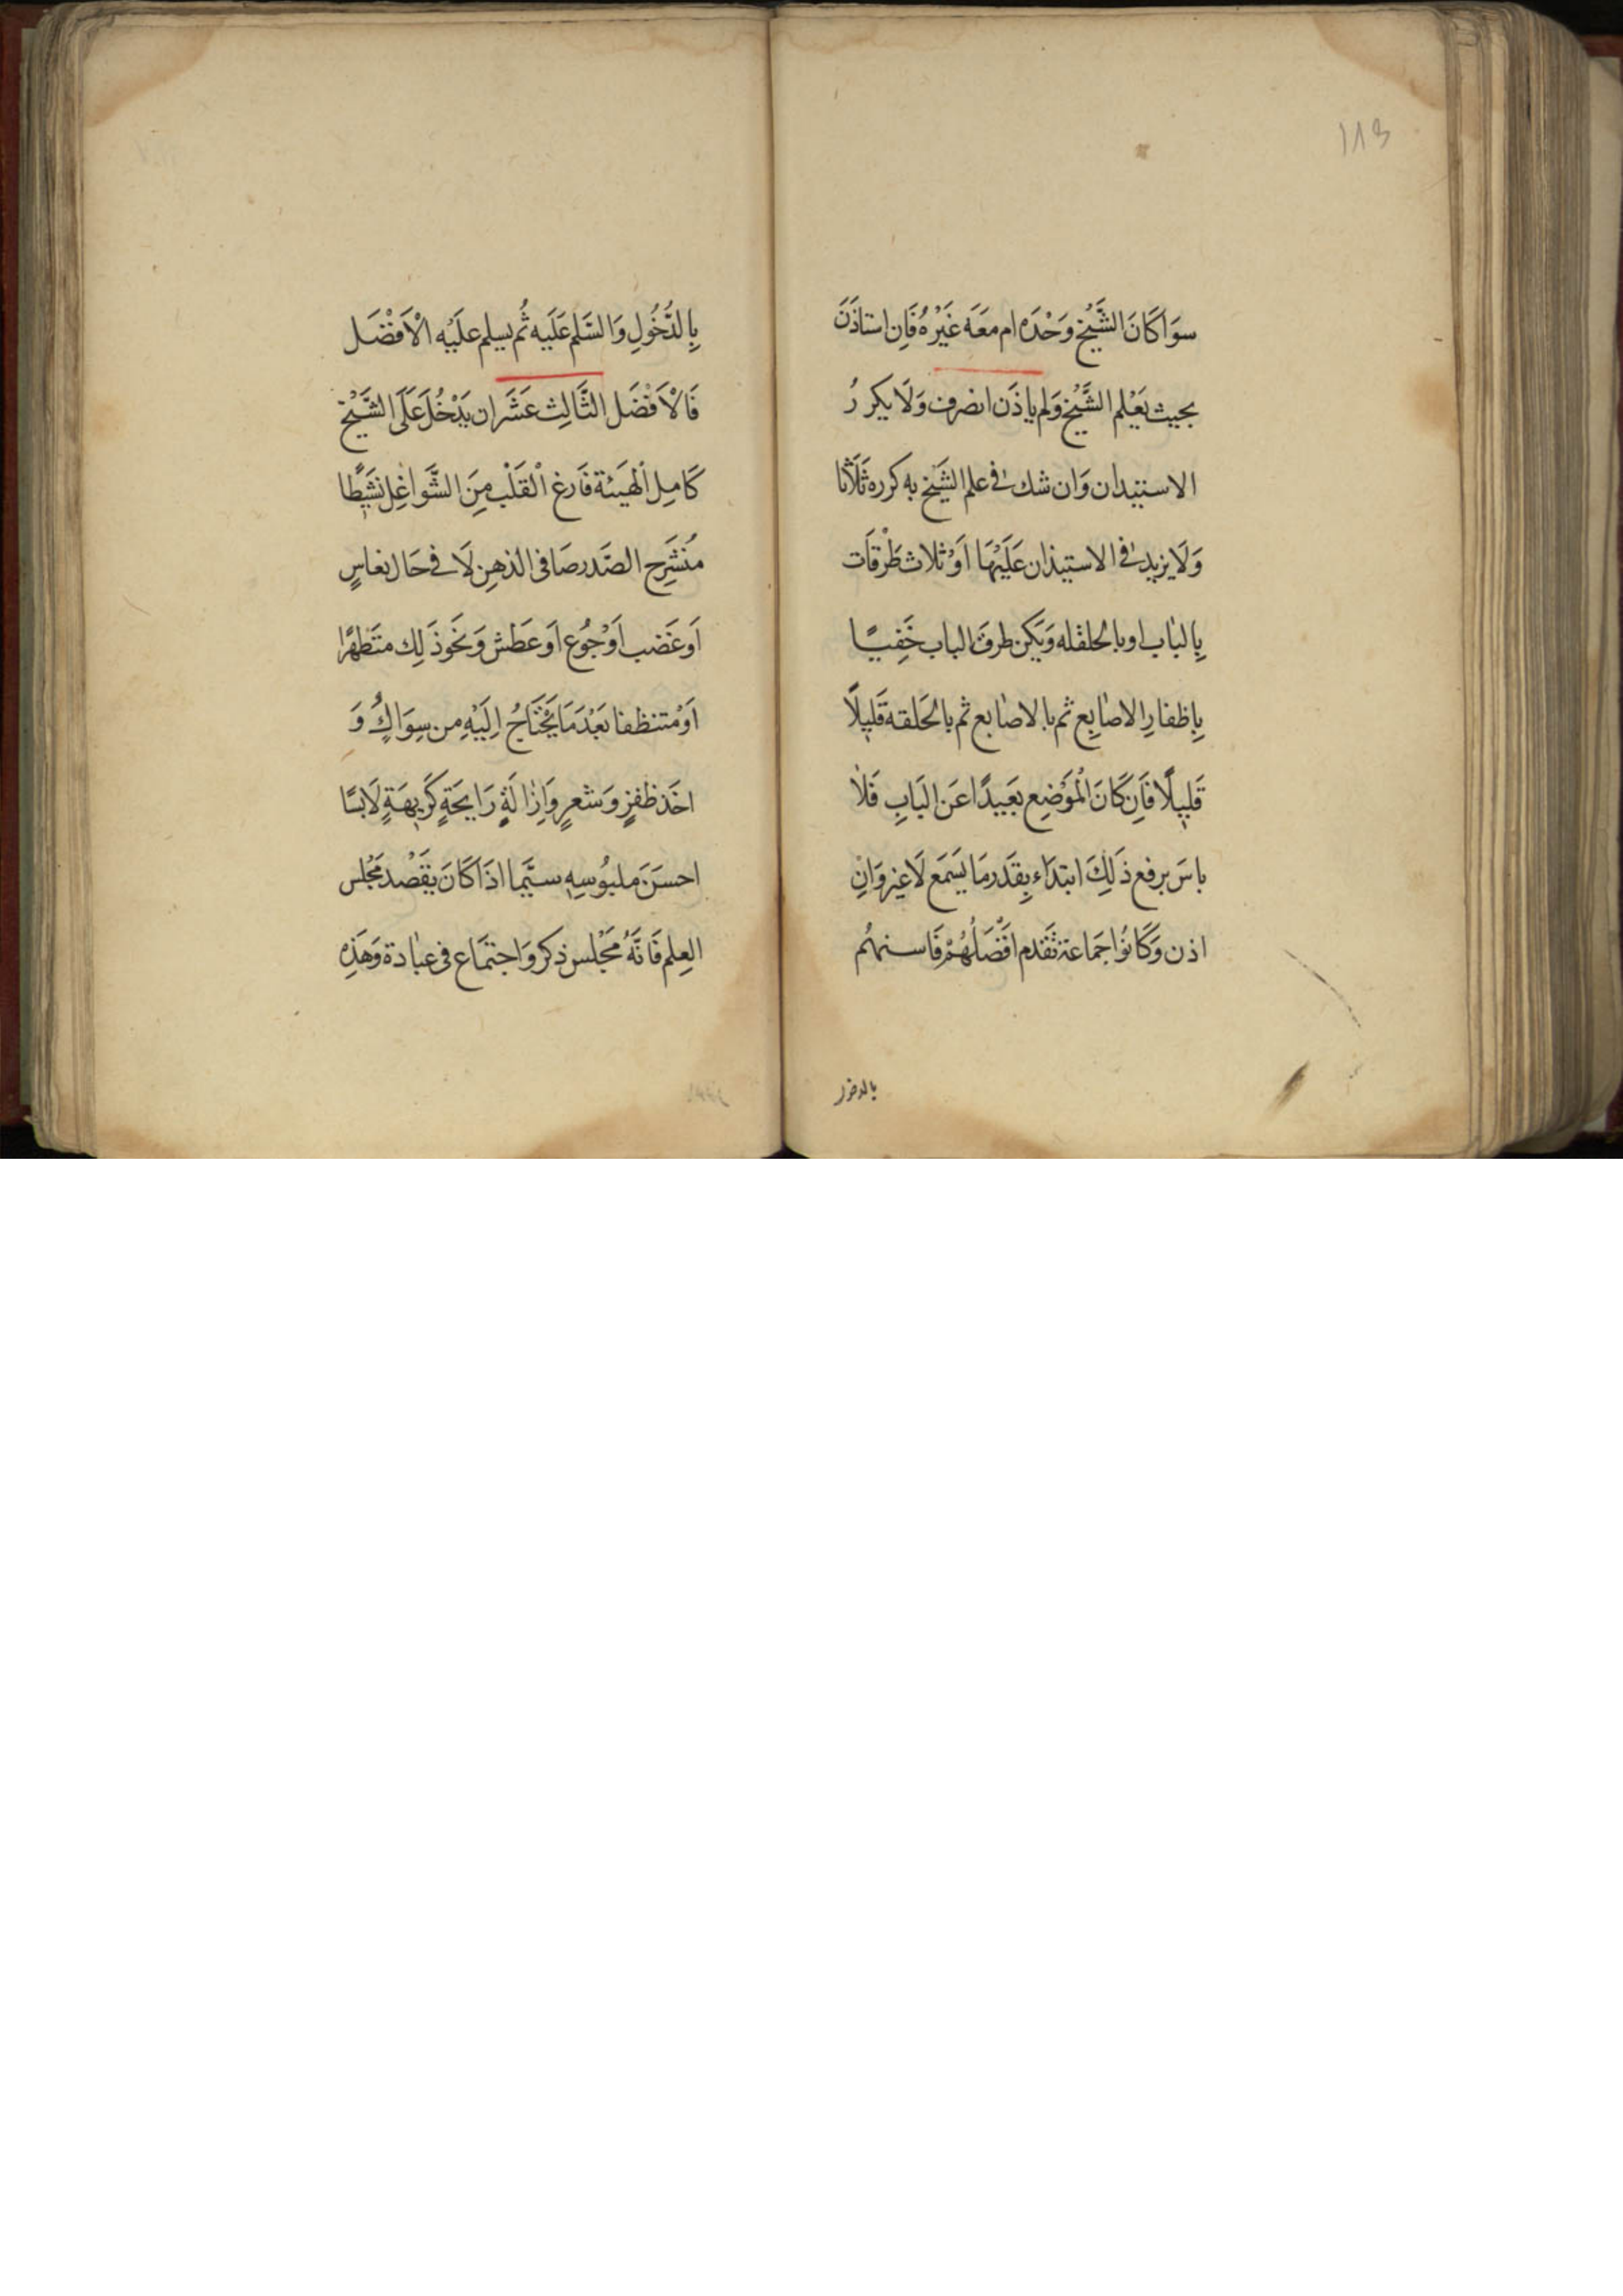 113
سوَا كَانَ الشَّيْخ وَحْدَه ام معَه غَيْرهُ فَاِن استاذَنَ
بحيث يَعْلم الشَّيْخ وَلم ياذَن انصرف وَلَا يكررُ
الاستيذان وَان شك فى علم الشَيْخ به كرره ثَلَاثا
وَلَا يزيد فى الاستيذان عَلَيْهَا اَوْ ثلاث طَرْقَات
بِالبَاب اوبالحلقله وَيَكن طرق الباب خَفِيًا
بِاظفارِ الاصابِع ثم بالاصابع ثم بالحَلقه قَلِيلًا
قَلِيلًا فَاِن كَانَ الْمَوْضِع بَعَيدًا عَن البَابِ فَلا
باسَ برفع ذَلِكَ ابتدَاء بِقَدَر مَا يَسَمَع لَاغير وَان
اذن وَكَانُوا جَمَاعة تَقَدم افْضَلُهُمْ فَاسنهُم
بالدخول
بِالدُّخُولِ وَالسَّلم عَلَيه ثُم يسلم علَيْه الْاَفْضَل
فَالْاَفْضَل الثَّالِث عَشَر ان يَدْخُلَ عَلَى الشَّيْخ
كَامِل اْلهَيَئة فَارغ اْلقَلْب مِنَ الشَّوَاغِل نَشِيطًا
مُنْشَرِح الصَّدر صَافى الذهِن لَا فى حَال نعاسٍ
اَو غَضب اَوْجُوع اَو عَطش وَنَحَوذَلِك متَطَهِرًا
اَوْ متنظفا بَعْدَ مَا يَحْتَاجُ اِلَيْهِ من سِوَاكٍ وَ
اخَذ ظفرٍ وَشَعرٍ وَاِزَالَةٍ رَايحَةٍ كَرِيهَةٍ لَابسًا
احسَنَ ملبُوسِهِ سيَّمَا اذَا كَانَ يَقَصْد مَجْلس
العِلم فَانَّهُ مَجْلس ذكر وَاجتَمَاع فى عبَادة وَهَذِه